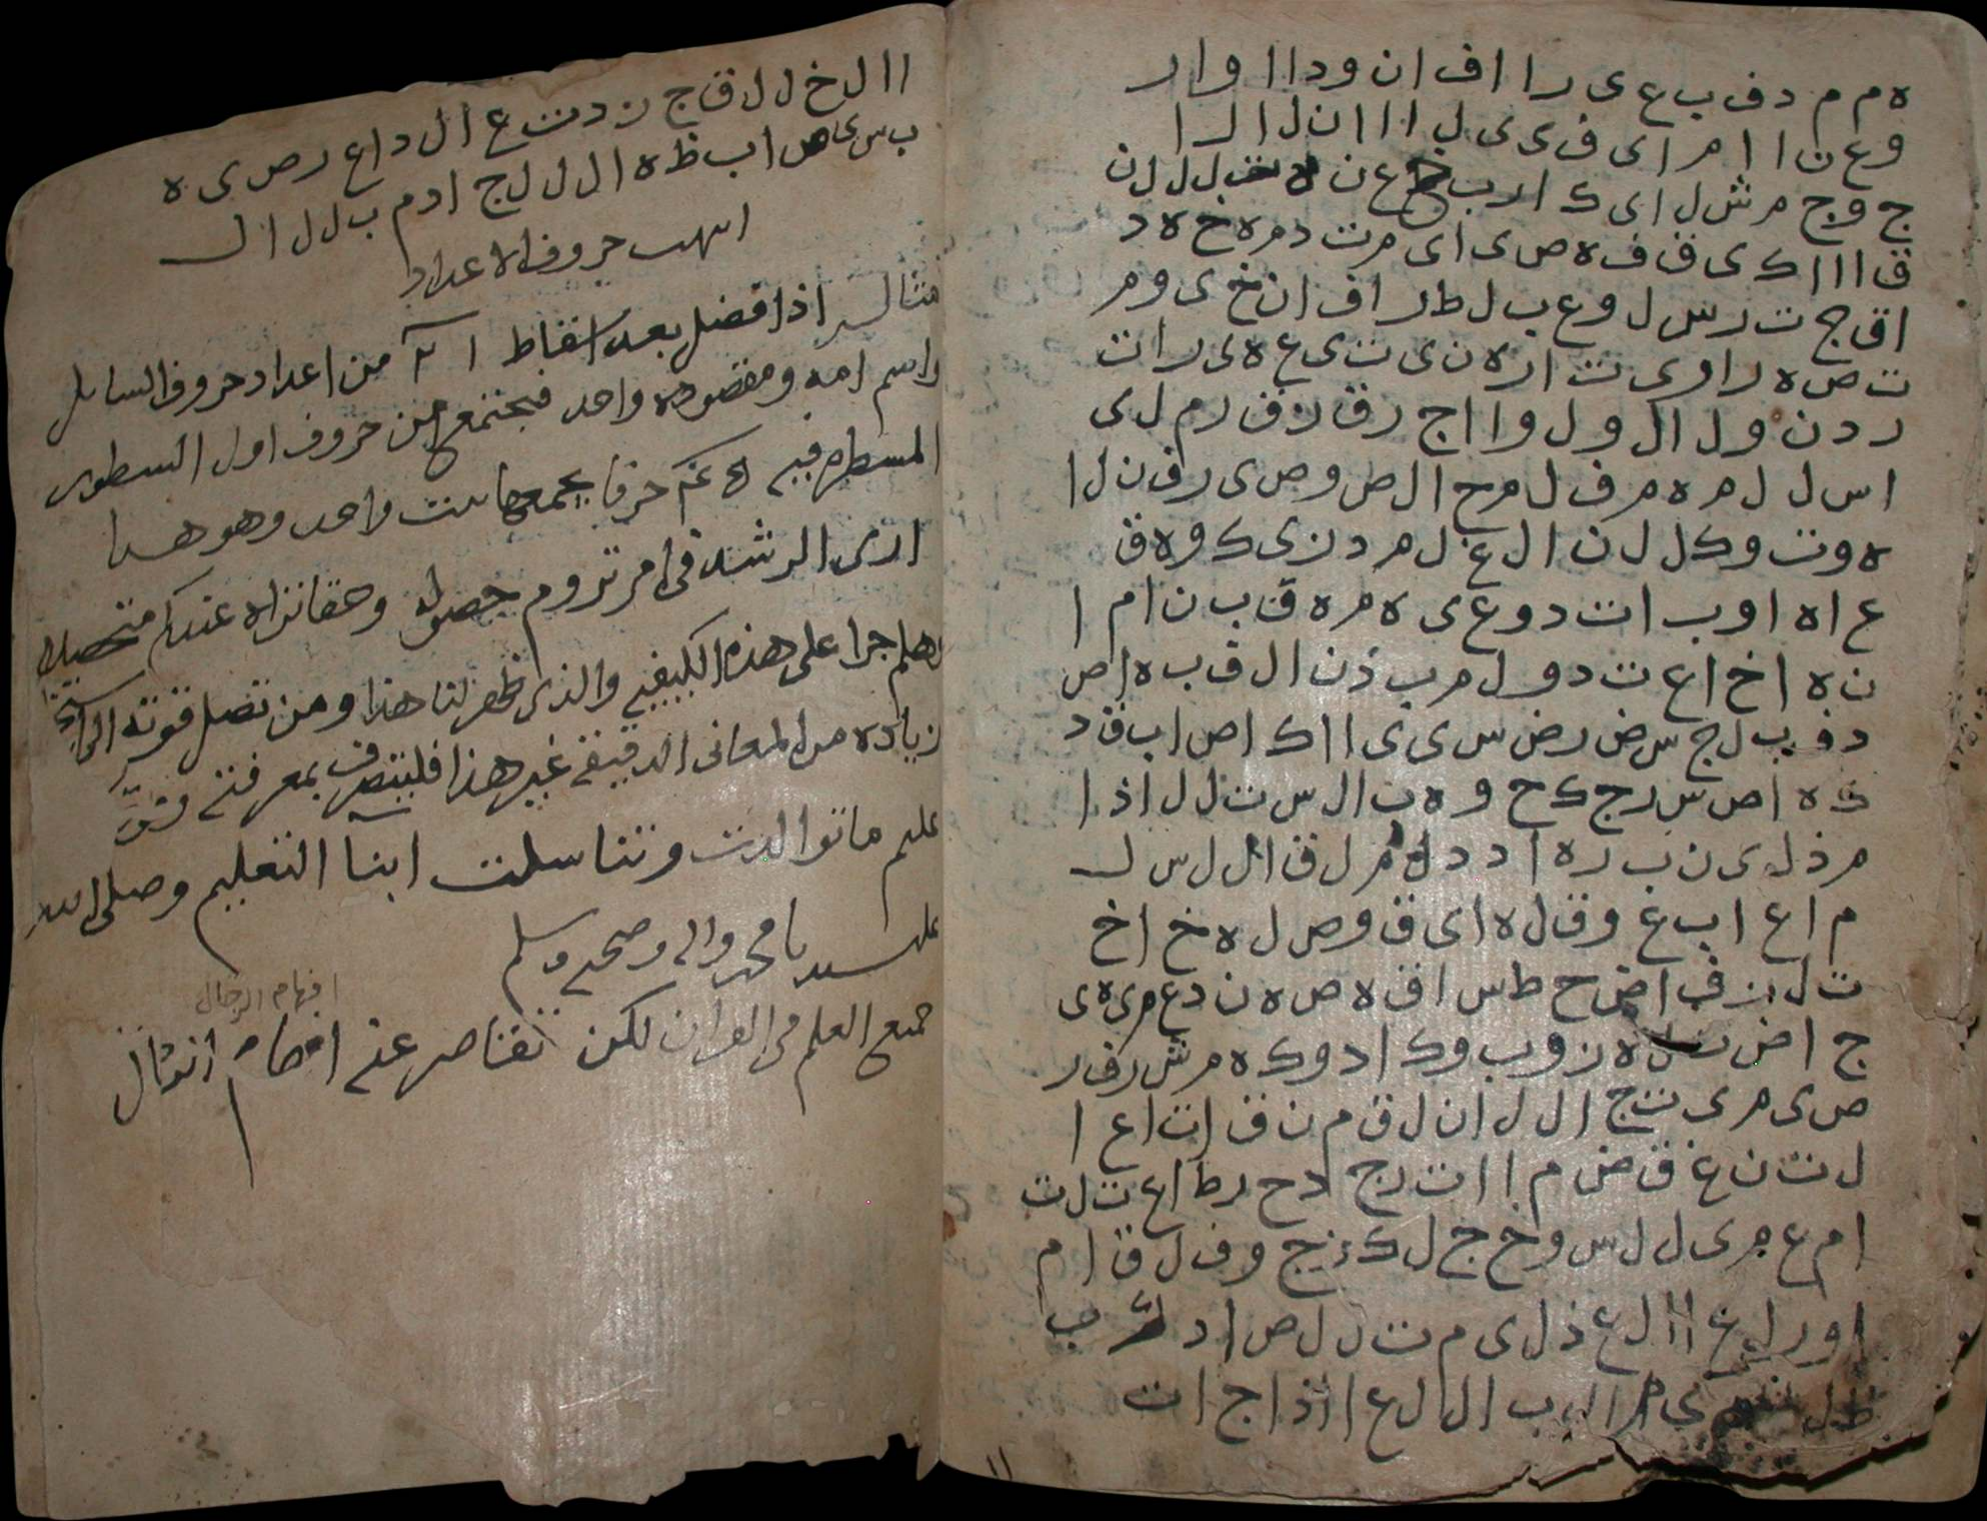 ه م م د ف ب ع ى ر ا ا ف ا ن و د ا ا و ا ر
و ع ن ا ا م ر ا ى ف ى ى ل ا ا ا ن ل ا ل ر ا
ج و ج م ش ل ا ى ك ا ر ب ع ن ل ل ل ن
ق ا ا ا ك ى ق ف ه ص ى ا ى م ت د م ه خ ه د
ا ق ج ت ر س ل و ع ب ل ط ر ا ف ا ن خ ى و م
ت ص ه ر ا و ى ت ا ر ه ن ى ت ى ع ه ى ر ا ت
ر د ن و ل ا ل و ل و ا ا ج ر ق ر ن ق ر م ل ى
ا س ل ل م ه م ف ل م ح ا ل ص و ص ى ر ف ن ل ا
ه و ت و ك ل ل ن ا ل ع ل م د ن ى ك و ه ق
ع ا ه ا و ب ا ت د و ع ى ه م ه ق ب ن ا م ا
ن ه ا خ ا ع ت د و ل م ب ذ ن ا ل ق ب ه ا ص
د ف ب ل ج س ض ر ض س ى ى ا ا ك ا ص ا ب ق د
ه ا ص س ر ج ك ح و ه ب ا ل س ت ل ل ا ذ ا
م ذ ل ى ن ب ر ه ا د د م ل ق ا ل ل س ل
م ا ع ا ب غ و ق ل ه ا ى ق و ص ل ه خ ا خ
ت ل ف ا ض ح ط س ا ق ه ص ه ن د ع م ى ه ى
ج ا ض ه ن و ب و ك ا د و ك ه م ش ر ف ر
ص ى م ى ت ج ا ل ل ا ن ل ق م ن ق ا ت ا ع ا
ل ت ن غ ق ض م ا ا ت ر ج ا د ح ر ط ا ع ت ل ت
ا م ع م ى ل ل س و خ ج ل ك ج و ف ل ق ا م
ا و ر ا غ ا ا ل ع ذ ل ى م ت ل ل ص ا د ب
ا ل ب ا ل ا ل ع ا ا ذ ا ج ا ت
ا ا ل خ ل ل ق ا ج ن د ت ع ا ل د ا ع ر ص ى ه
ب س ص ا ب ظ ه ا ل ل ل ج ا د م ب ل ل ا ل
انتهت حروف الاعداد
مثاله اذا فضل بعد اسقاط من اعداد حروف السايل
واسم امه ومقصوده واحد فيجتمع من حروف اول السطور
المسطره فيه حرفا يجمعها بيت واحد وهو هذا
ارى الرشد فى امر تروم حصوله وحقا نراه عندكم متحصلا
وهلم جرا على هذه الكيفيه والذى ظهر لنا هذا ومن تصل قوته الى
زياده من المعانى الدقيقه غير هذا فليتصرف بمعرفته
علم ما توالدت وتناسلت ابنا التعليم وصلى الله
على سيدنا محمد واله وصحبه وسلم
افهام الرجال
جميع العلم فى القران لكن تقاصر عنه افهام الرجال
١١